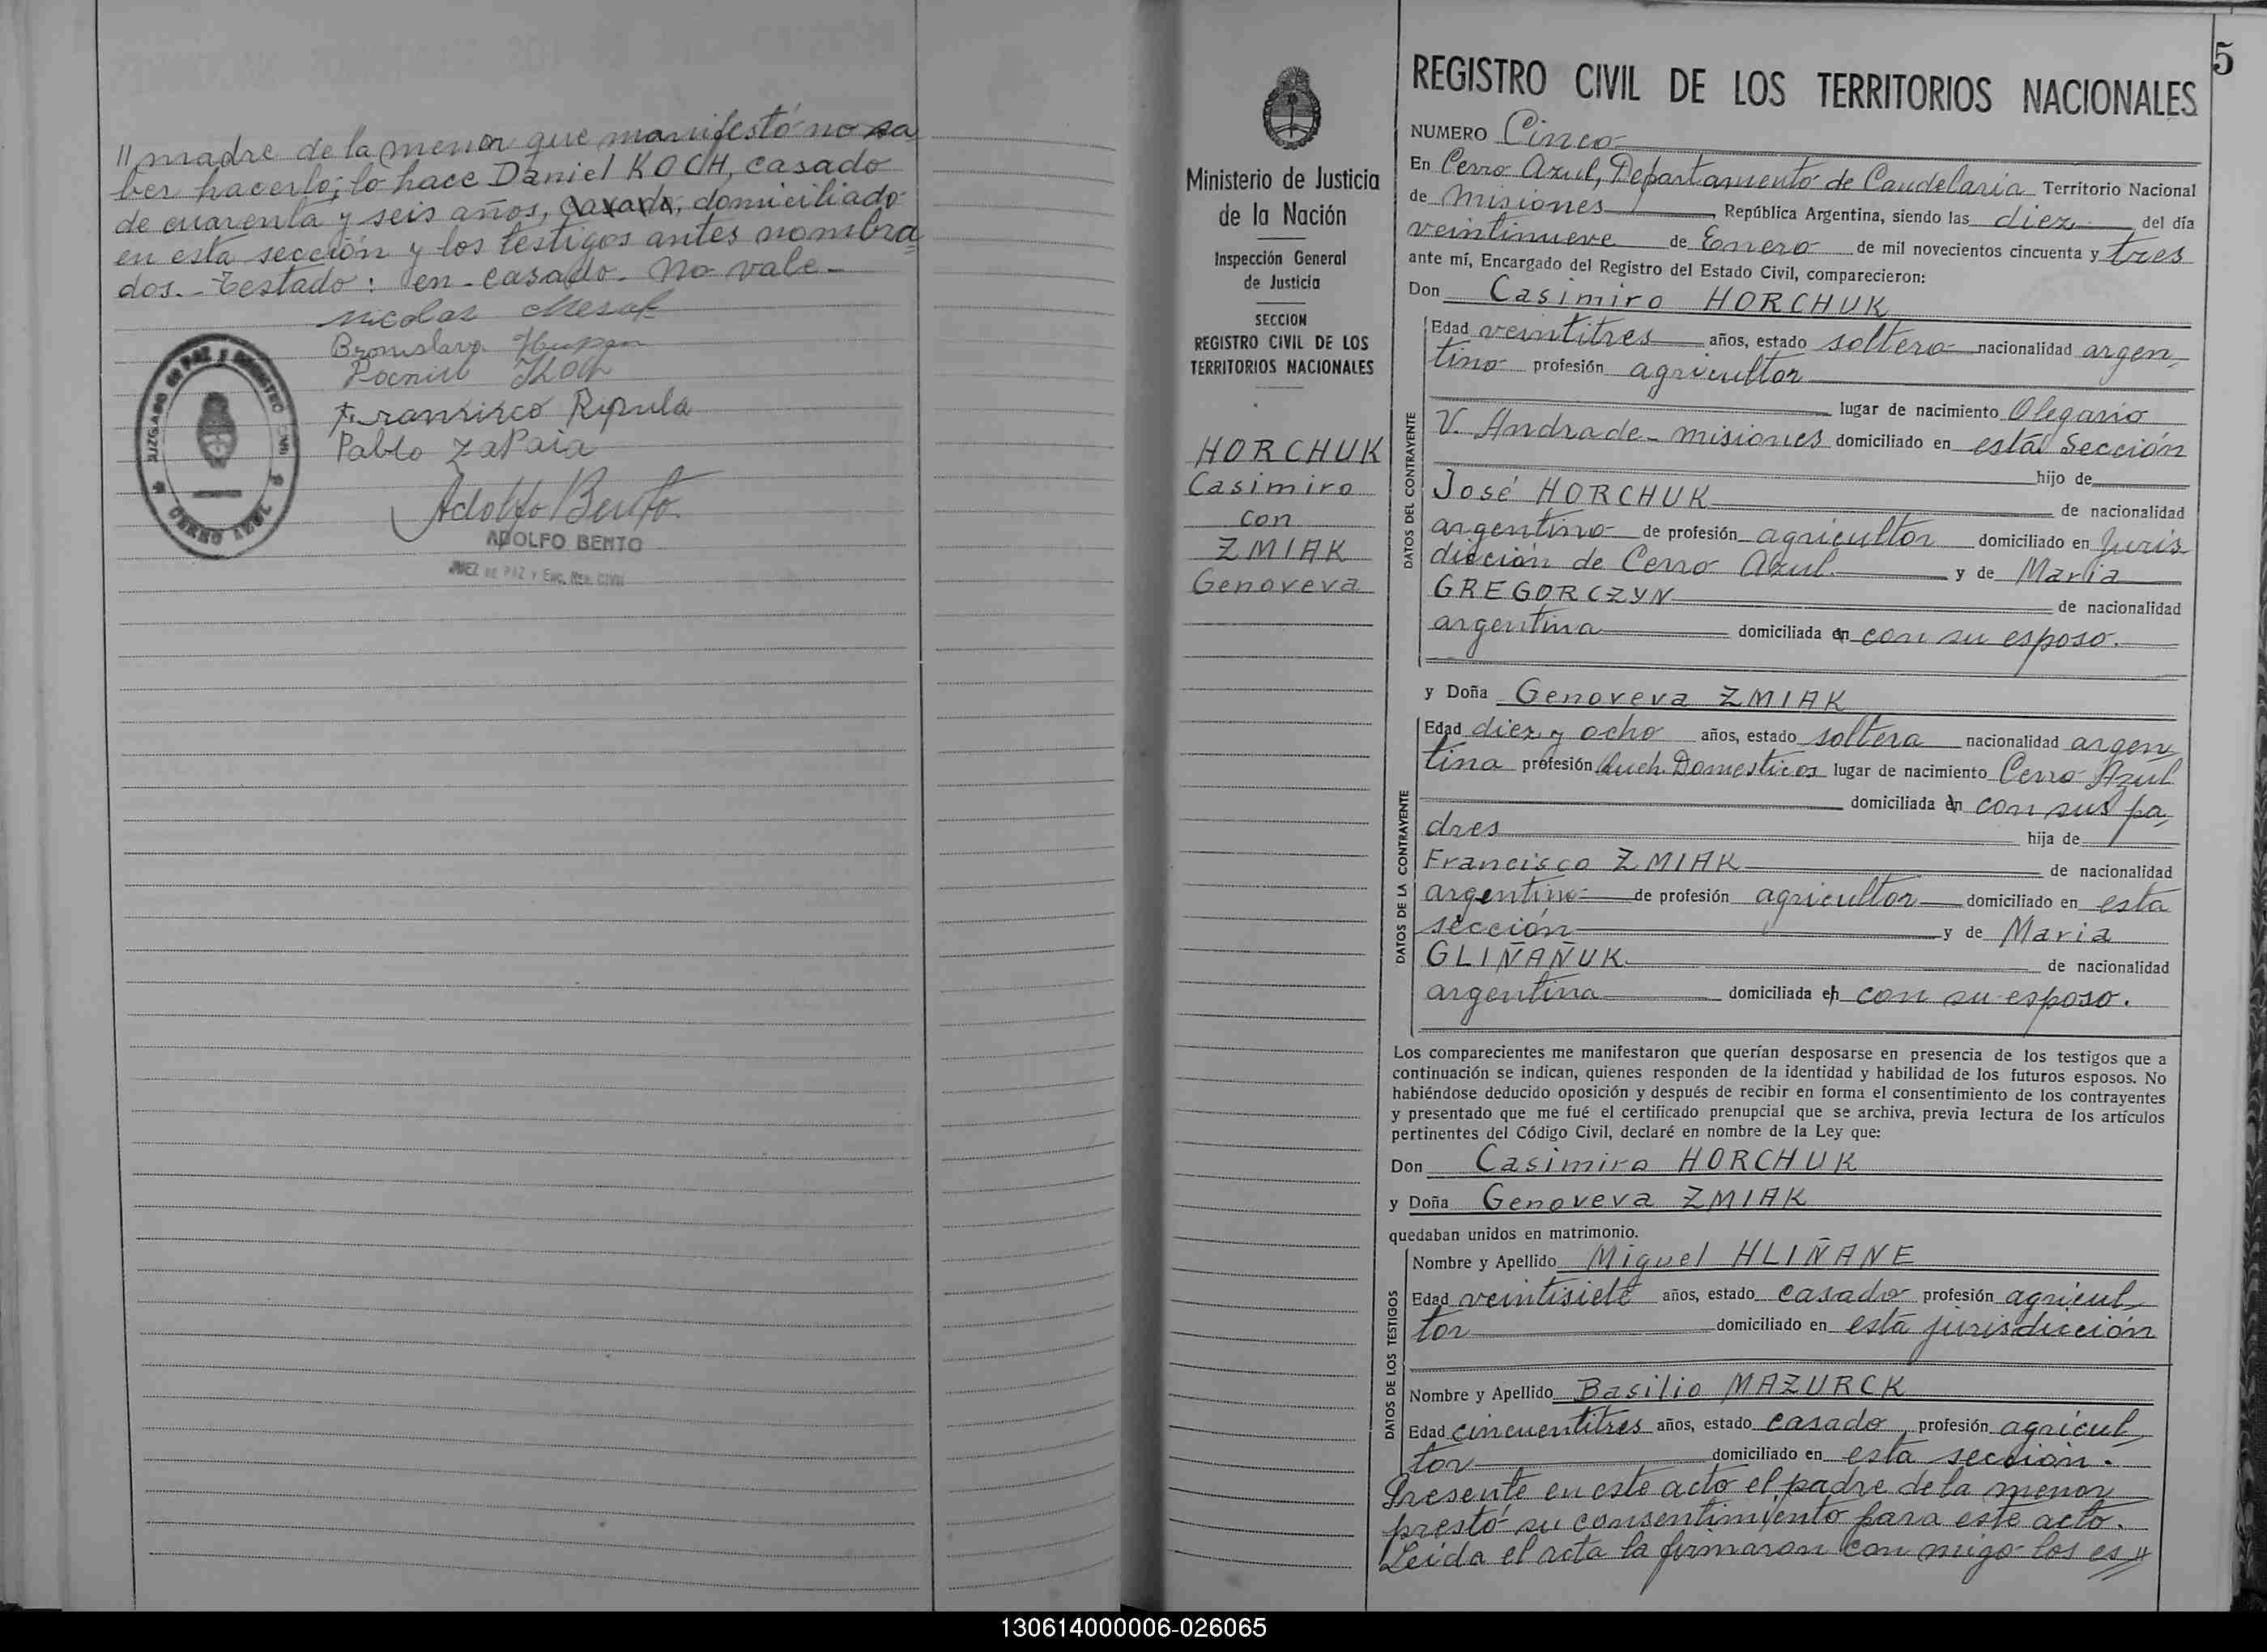 // madre de la menor que manifestó no sa
ber hacerlo; lo hace Daniel KOCH, casado
de cuarenta y seis años, casado, domiciliado
en esta sección y los testigos antes nombra
dos.- Testado: en - casado - No vale -
Nicolas
Bronislava
Pablo Zapaia
Adolfo Bento
ADOLFO BENTO
JUEZ DE PAZ Y ENC. REG. CIVIL
JUZGADO DE PAZ Y REGISTRO CIVIL
CERRO AZUL
5
Ministerio de Justicia
de la Nación
Inspección General
de Justicia
SECCION
REGISTRO CIVIL DE LOS
TERRITORIOS NACIONALES
HORCHUK
Casimiro
con
ZMIAK
Genoveva
REGISTRO CIVIL DE LOS TERRITORIOS NACIONALES
NUMERO Cinco
En Cerro Azul, Departamento de Candelaria Territorio Nacional
de Misiones, República Argentina, siendo las diez del día
veintinueve de Enero de mil novecientos cincuenta y tres
ante mí, Encargado del Registro del Estado Civil, comparecieron:
Don Casimiro HORCHUK
DATOS DEL CONTRAYENTE
Edad veintitres años, estado soltero nacionalidad argen
tino profesión agricultor
lugar de nacimiento Olegario
V. Andrade - Misiones domiciliado en esta Sección
hijo de
José HORCHUK de nacionalidad
argentino de profesión agricultor domiciliado en Juris
dicción de Cerro Azul. y de Maria
GREGORCZYN de nacionalidad
argentina domiciliada en con su esposo.
y Doña Genoveva ZMIAK
DATOS DE LA CONTRAYENTE
Edad diez y ocho años, estado soltera nacionalidad argen
tina profesión Queh. Domesticos lugar de nacimiento Cerro Azul
domiciliada en con sus pa
dres hija de
Francisco ZMIAK de nacionalidad
argentino de profesión agricultor domiciliado en esta
sección y de Maria
GLIÑAÑUK de nacionalidad
argentina domiciliada en con su esposo.
Los comparecientes me manifestaron que querían desposarse en presencia de los testigos que a
continuación se indican, quienes responden de la identidad y habilidad de los futuros esposos. No
habiéndose deducido oposición y después de recibir en forma el consentimiento de los contrayentes
y presentado que me fué el certificado prenupcial que se archiva, previa lectura de los artículos
pertinentes del Código Civil, declaré en nombre de la Ley que:
Don Casimiro HORCHUK
y Doña Genoveva ZMIAK
quedaban unidos en matrimonio.
DATOS DE LOS TESTIGOS
Nombre y Apellido Miguel HLIÑANE
Edad veintisiete años, estado casado profesión agricul
tor domiciliado en esta jurisdicción
Nombre y Apellido Basilio MAZURCK
Edad cincuentitres años, estado casado profesión agricul
tor domiciliado en esta sección.
Presente en este acto el padre de la menor
prestó su consentimiento para este acto.
Leída el acta la firmaron con migo los es//
130614000006-026065